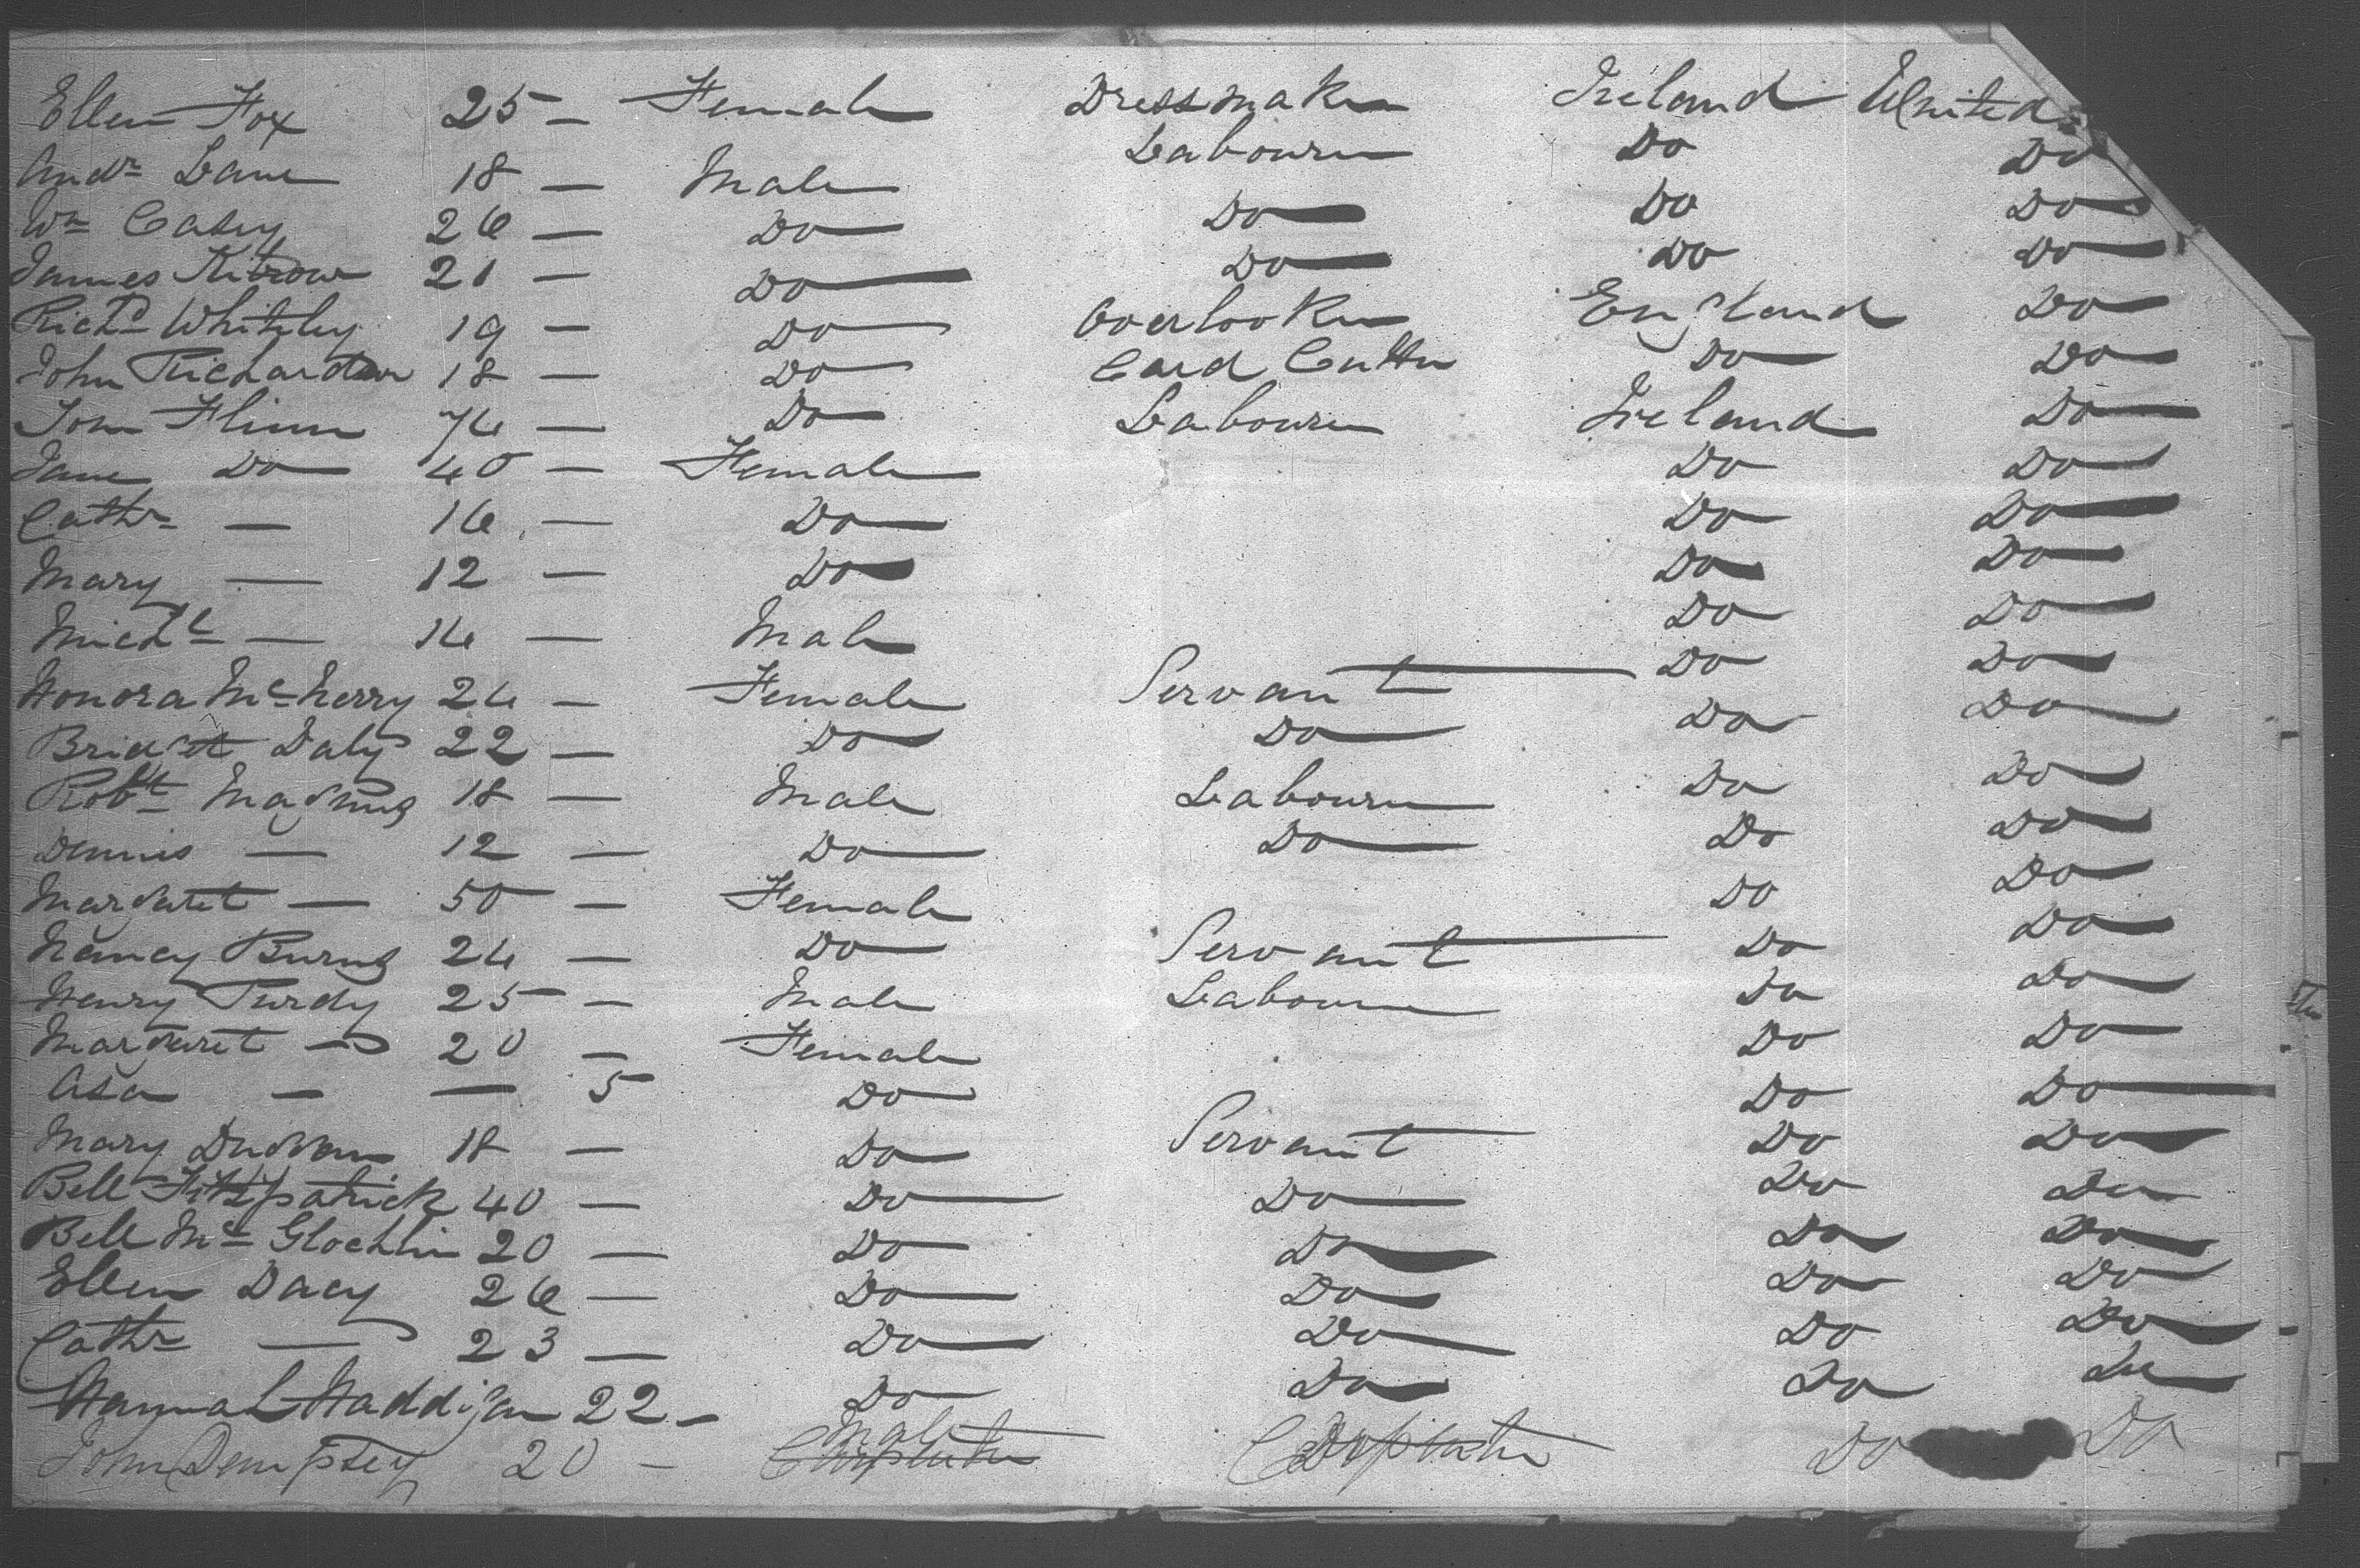 Ellen Fox 25 — Female Dressmaker Ireland United
Andw Lane 18 — Male Labourer Do Do
Wm Casey 26 — Do Do Do Do
James 21 — Do Do Do Do
Richd Whiteley 19 — Do Overlooker England Do
John Richardson 18 — Do Card Cutter Do Do
Tom Flinn 46 — Do Labourer Ireland Do
Jane Do 40 — Female Do Do
Cathe — 16 — Do Do Do
Mary — 12 — Do Do Do
Michl — 14 — Male Do Do
Honora McNerry 24 — Female Servant Do Do
Bridget Daly 22 — Do Do Do Do
Robt Magnus 18 — Male Labourer Do Do
Dennis — 12 — Do Do Do Do
Margaret — 50 — Female Do Do
Nancy Burns 24 — Do Servant Do Do
Henry Purdy 25 — Male Labourer Do Do
Margaret — 20 — Female Do Do
Asa — — 5 Do Do Do
Mary 18 — Do Servant Do Do
Bell Fitzpatrick 40 — Do Do Do Do
Bell McGlochlin 20 — Do Do Do Do
Ellen Dacy 26 — Do Do Do Do
Cathe — 23 — Do Do Do Do
Hannah Haddigan 22 — Do Do Do Do
John Dempsey 20 — Male Carpenter Do Do